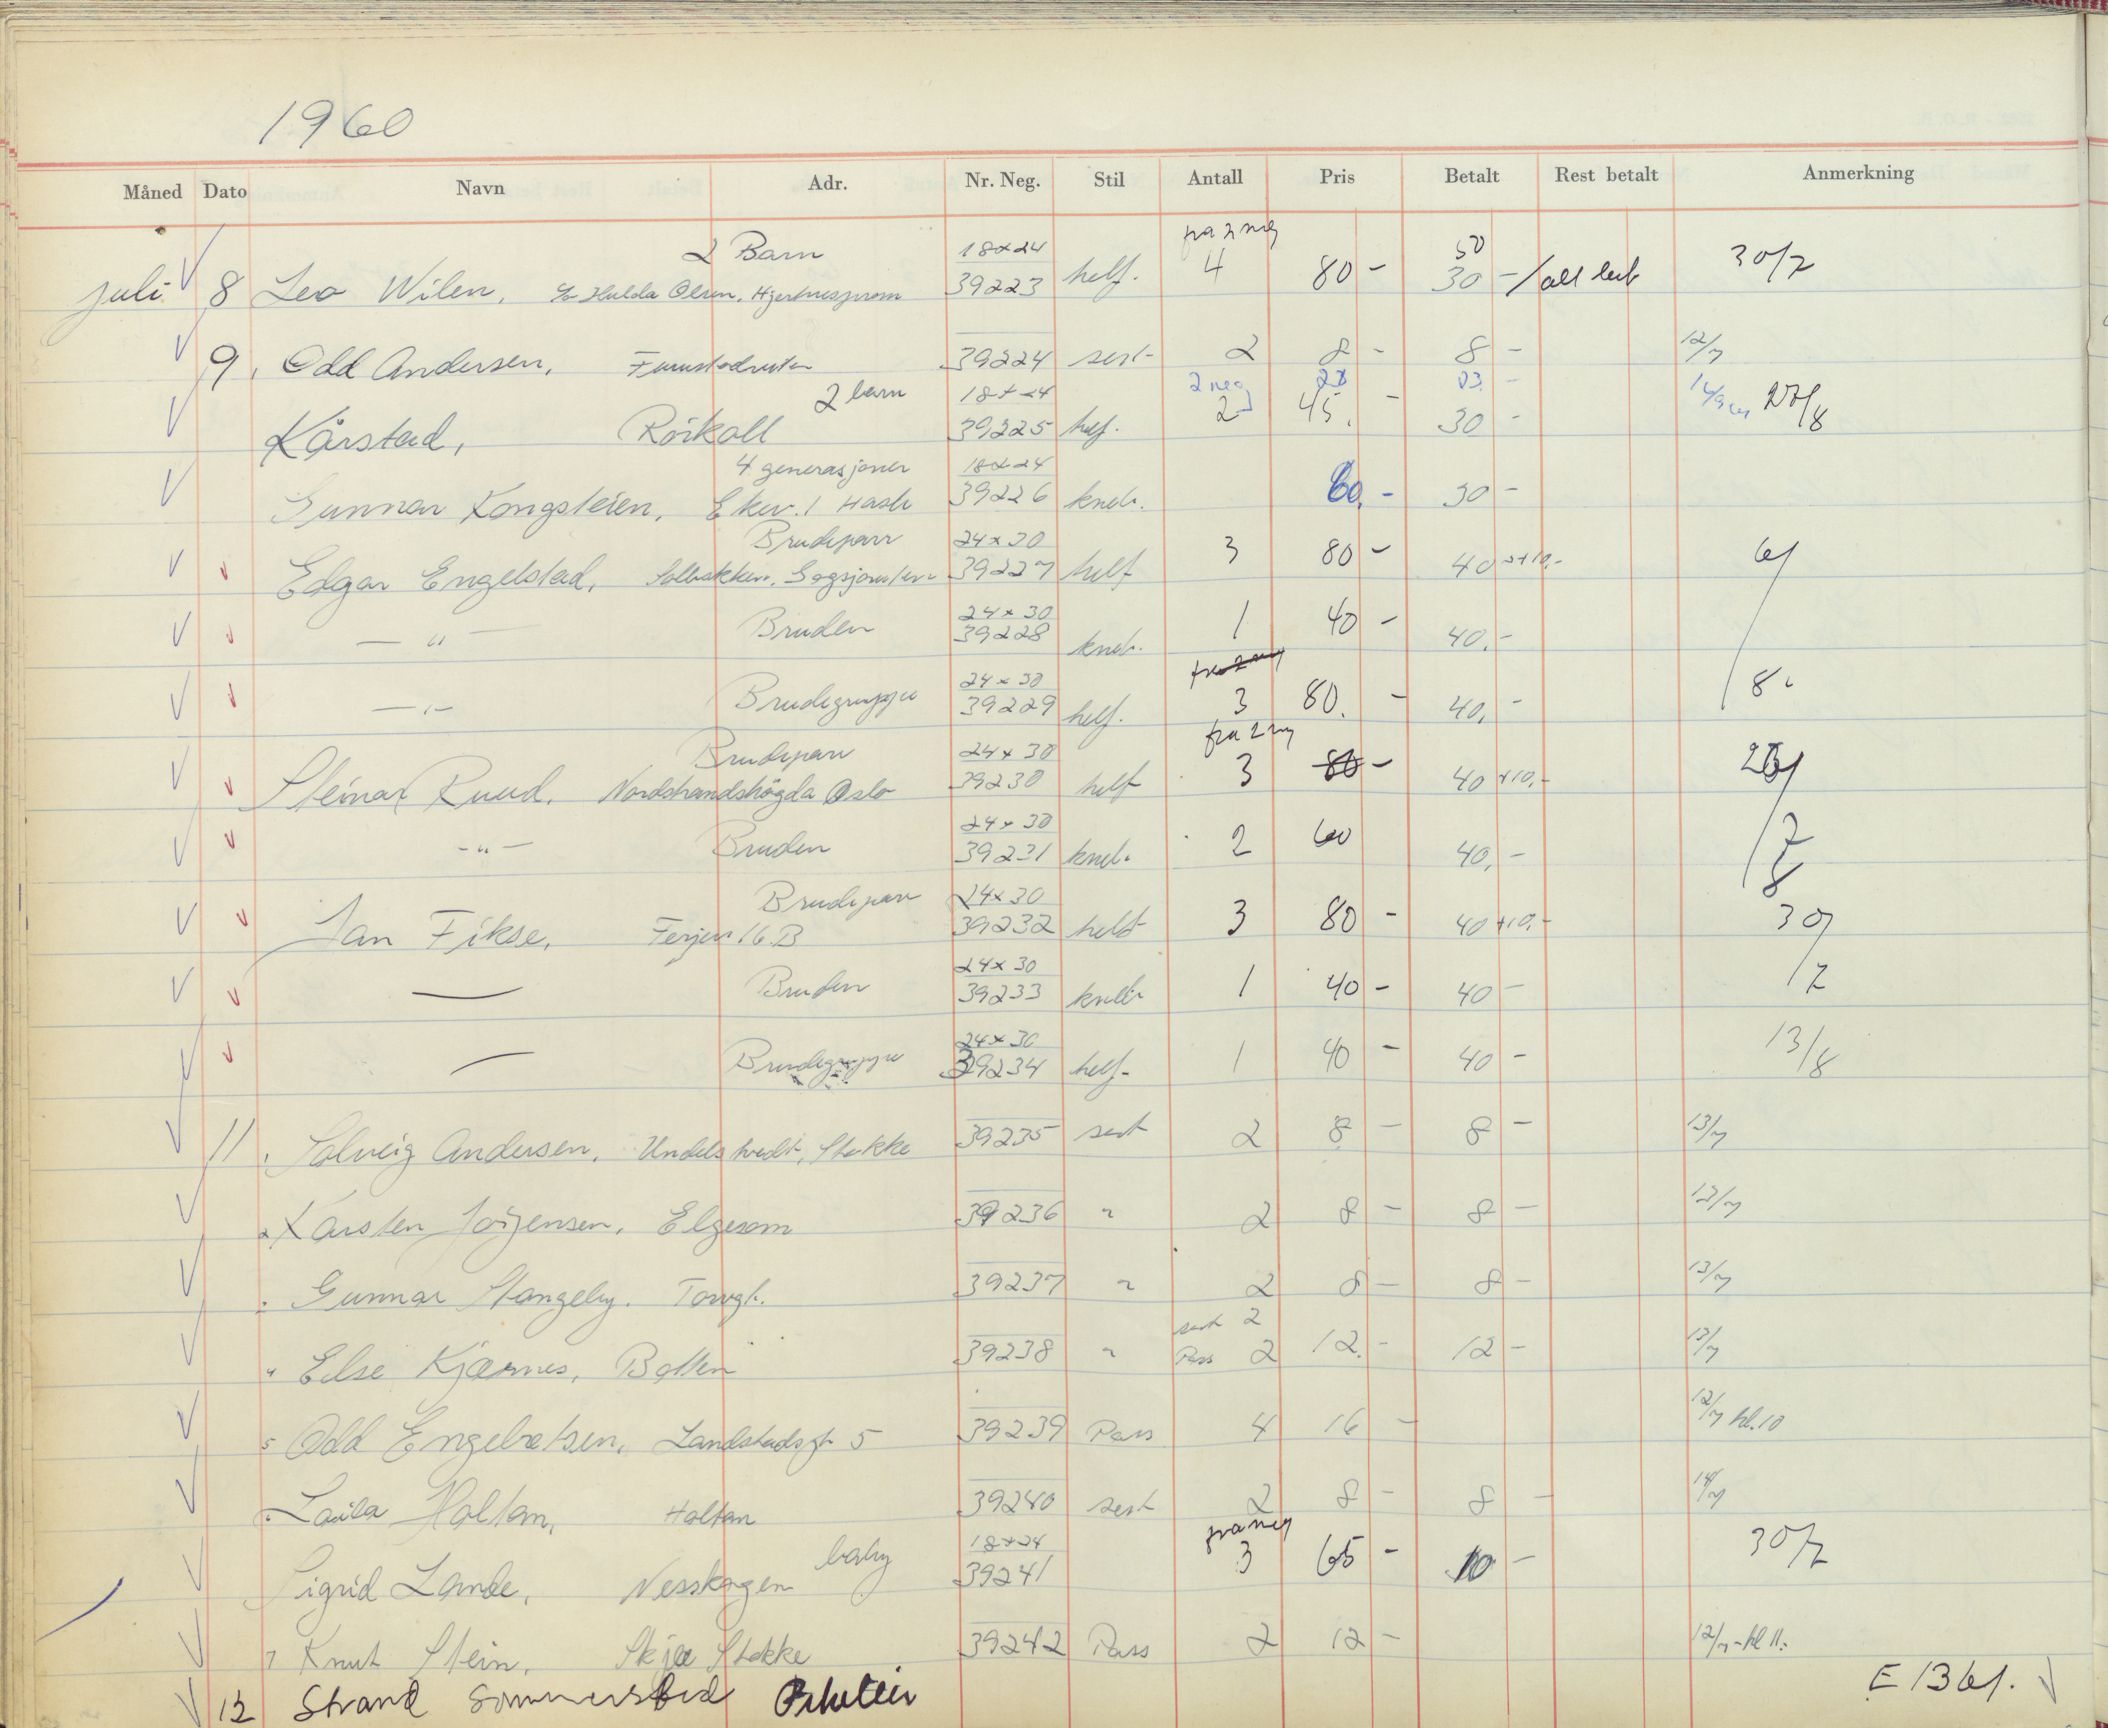 1960
Måned Dato Navn Adr. Nr. Neg. Stil Antall Pris Betalt Rest betalt Anmerkning
2 Barn 18x24 fra 2 neg 50
juli 8 Leo Wilen, Hulda Olsen, 39223 helf. 4 80 - 30 - 30/7
9. Odd Andersen, 39224 sert- 2 8 - 8 - 12/7
2 barn 18x24 2 neg
Kårstad, Röikoll 39225 helf. 2 45. - 30 -
4 generasjoner 18x24
Gunnar Kongsteien, 39226 kneb. 60. - 30 -
Brudepar 24x30
Edgar Engelstad, Solbakken, 39227 helf 3 80 - 40 +10,-
24x30
— " — Bruden 39228 kneb. 1 40 - 40.-
24x30
— " — Brudegruppe 39229 helf. 3 80. - 40, - 8
Brudepar 24x30 fra 2 neg
Steinar Ruud. Nordstrandshögda Oslo 39230 helf 3 80 - 40 +10,-
24x30
— " — Bruden 39231 kneb. 2 60 40, -
Brudepar 24x30
Jan Fikse, Ferjen 16.B 39232 helf 3 80 - 40 +10,- 30/7
24x30
— Bruden 39233 kneb 1 40 - 40 -
24x30
— Brudegruppe 39234 helf- 1 40 - 40 - 13/8
11 . Solveig Andersen, Stokke 39235 sert 2 8 - 8 - 13/7
2 Karsten Jörgensen, Elgesem 39236 " 2 8 - 8 - 13/7
Gunnar Stangeby. Torvgt. 39237 " 2 8 - 8 - 13/7
sert 2
4 Else Kjærnes, 39238 " Pass 2 12.- 12 - 13/7
5 Odd Engebretsen, Landstadsgt 5 39239 Pass 4 16 - 12/7 kl.10
Laila Holtan, Holtan 39240 sert 2 8 - 8 - 14/7
baby 18x24 fra neg
Sigrid Lande, Nesskogen 39241 3 65 - 10 - 30/7
7 Knut Stein, Skjee Stokke 39242 Pass 2 12 - 12/7 - kl 11.
12 Strand Sommersted E 1361.